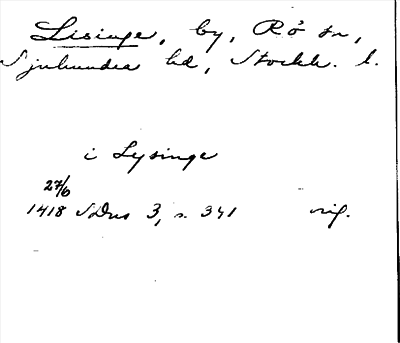 Lisinge, by, Rö sn,
Sjuhundra hd, Stockh. l.
i Lysinge
27/6
1418 SDns 3, s. 341 orig.